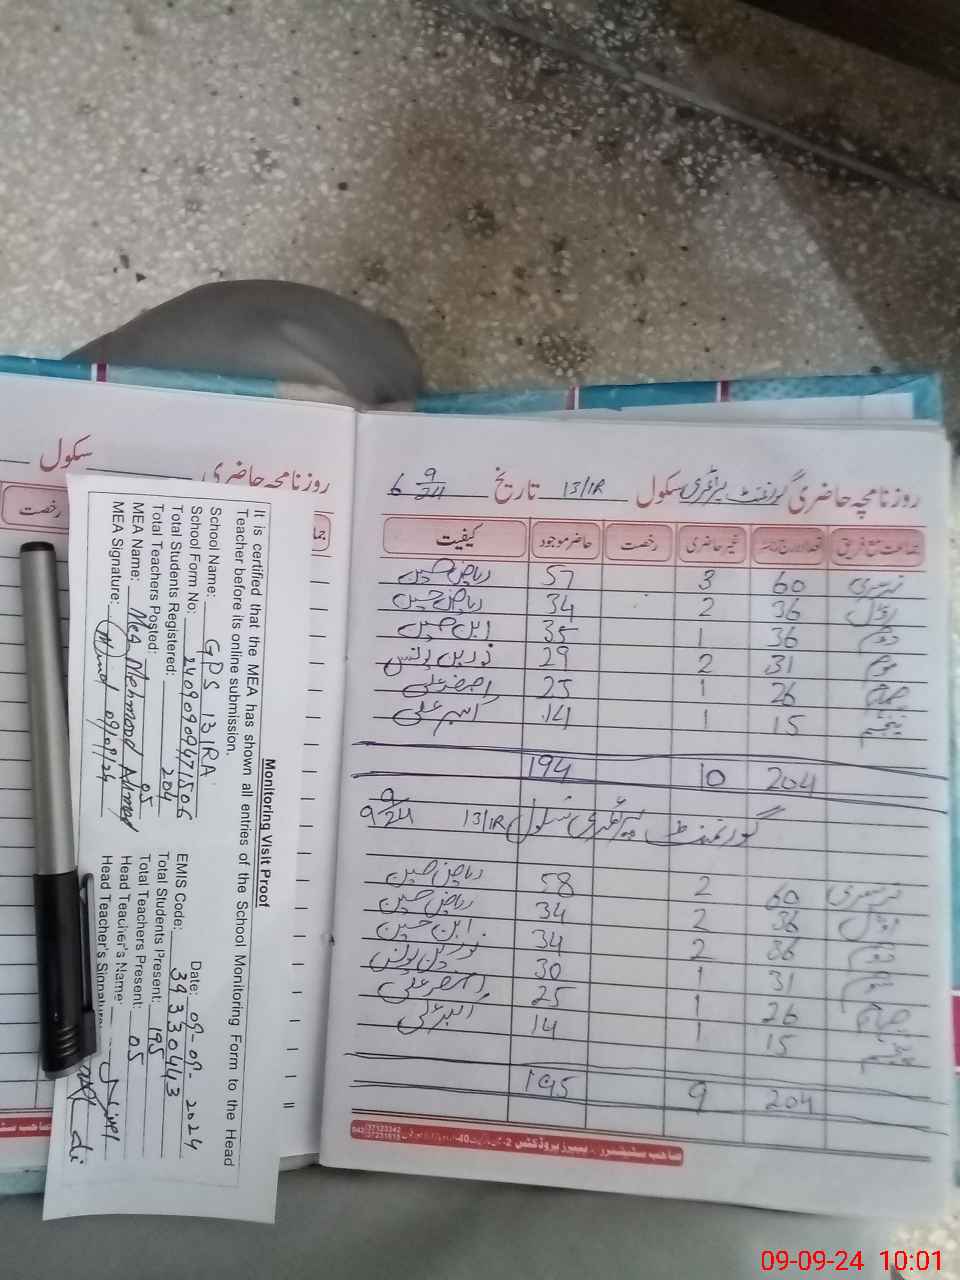 سکول
روزنامچہ حاضری
رخصت
روزنامچہ حاضری گورنمنٹ پرائمری سکول 13/1R تاریخ 6 9/24
جماعت مع فریق تعداد درج رجسٹر غیر حاضری رخصت حاضر موجود کیفیت
نرسری 60 3 57 ریاض حسین
اول 36 2 34 ریاض حسین
دوم 36 1 35 ابن حسین
سوم 31 2 29 نورین یونس
چہارم 26 1 25 اصغر علی
پنجم 15 1 14 اکبر علی
204 10 194
گورنمنٹ پرائمری سکول 13/1R 9 9/24
نرسری 60 2 58 ریاض حسین
اول 36 2 34 ریاض حسین
دوم 36 2 34 ابن حسین
سوم 31 1 30 نورین یونس
چہارم 26 1 25 اصغر علی
پنجم 15 1 14 اکبر علی
204 9 195
صاحب سٹیشنرز
Monitoring Visit Proof
It is certified that the MEA has shown all entries of the School Monitoring Form to the Head
Teacher before its online submission.
Date: 09-09-2024
School Name: GPS 13 1RA EMIS Code: 39330443
School Form No: 24090909471506
Total Students Registered: 204 Total Students Present: 195
Total Teachers Posted: 05 Total Teachers Present: 05
MEA Name: Mehmood Ahmad Head Teacher's Name:
MEA Signature: 09/09/24 Head Teacher's Signature:
09-09-24 10:01